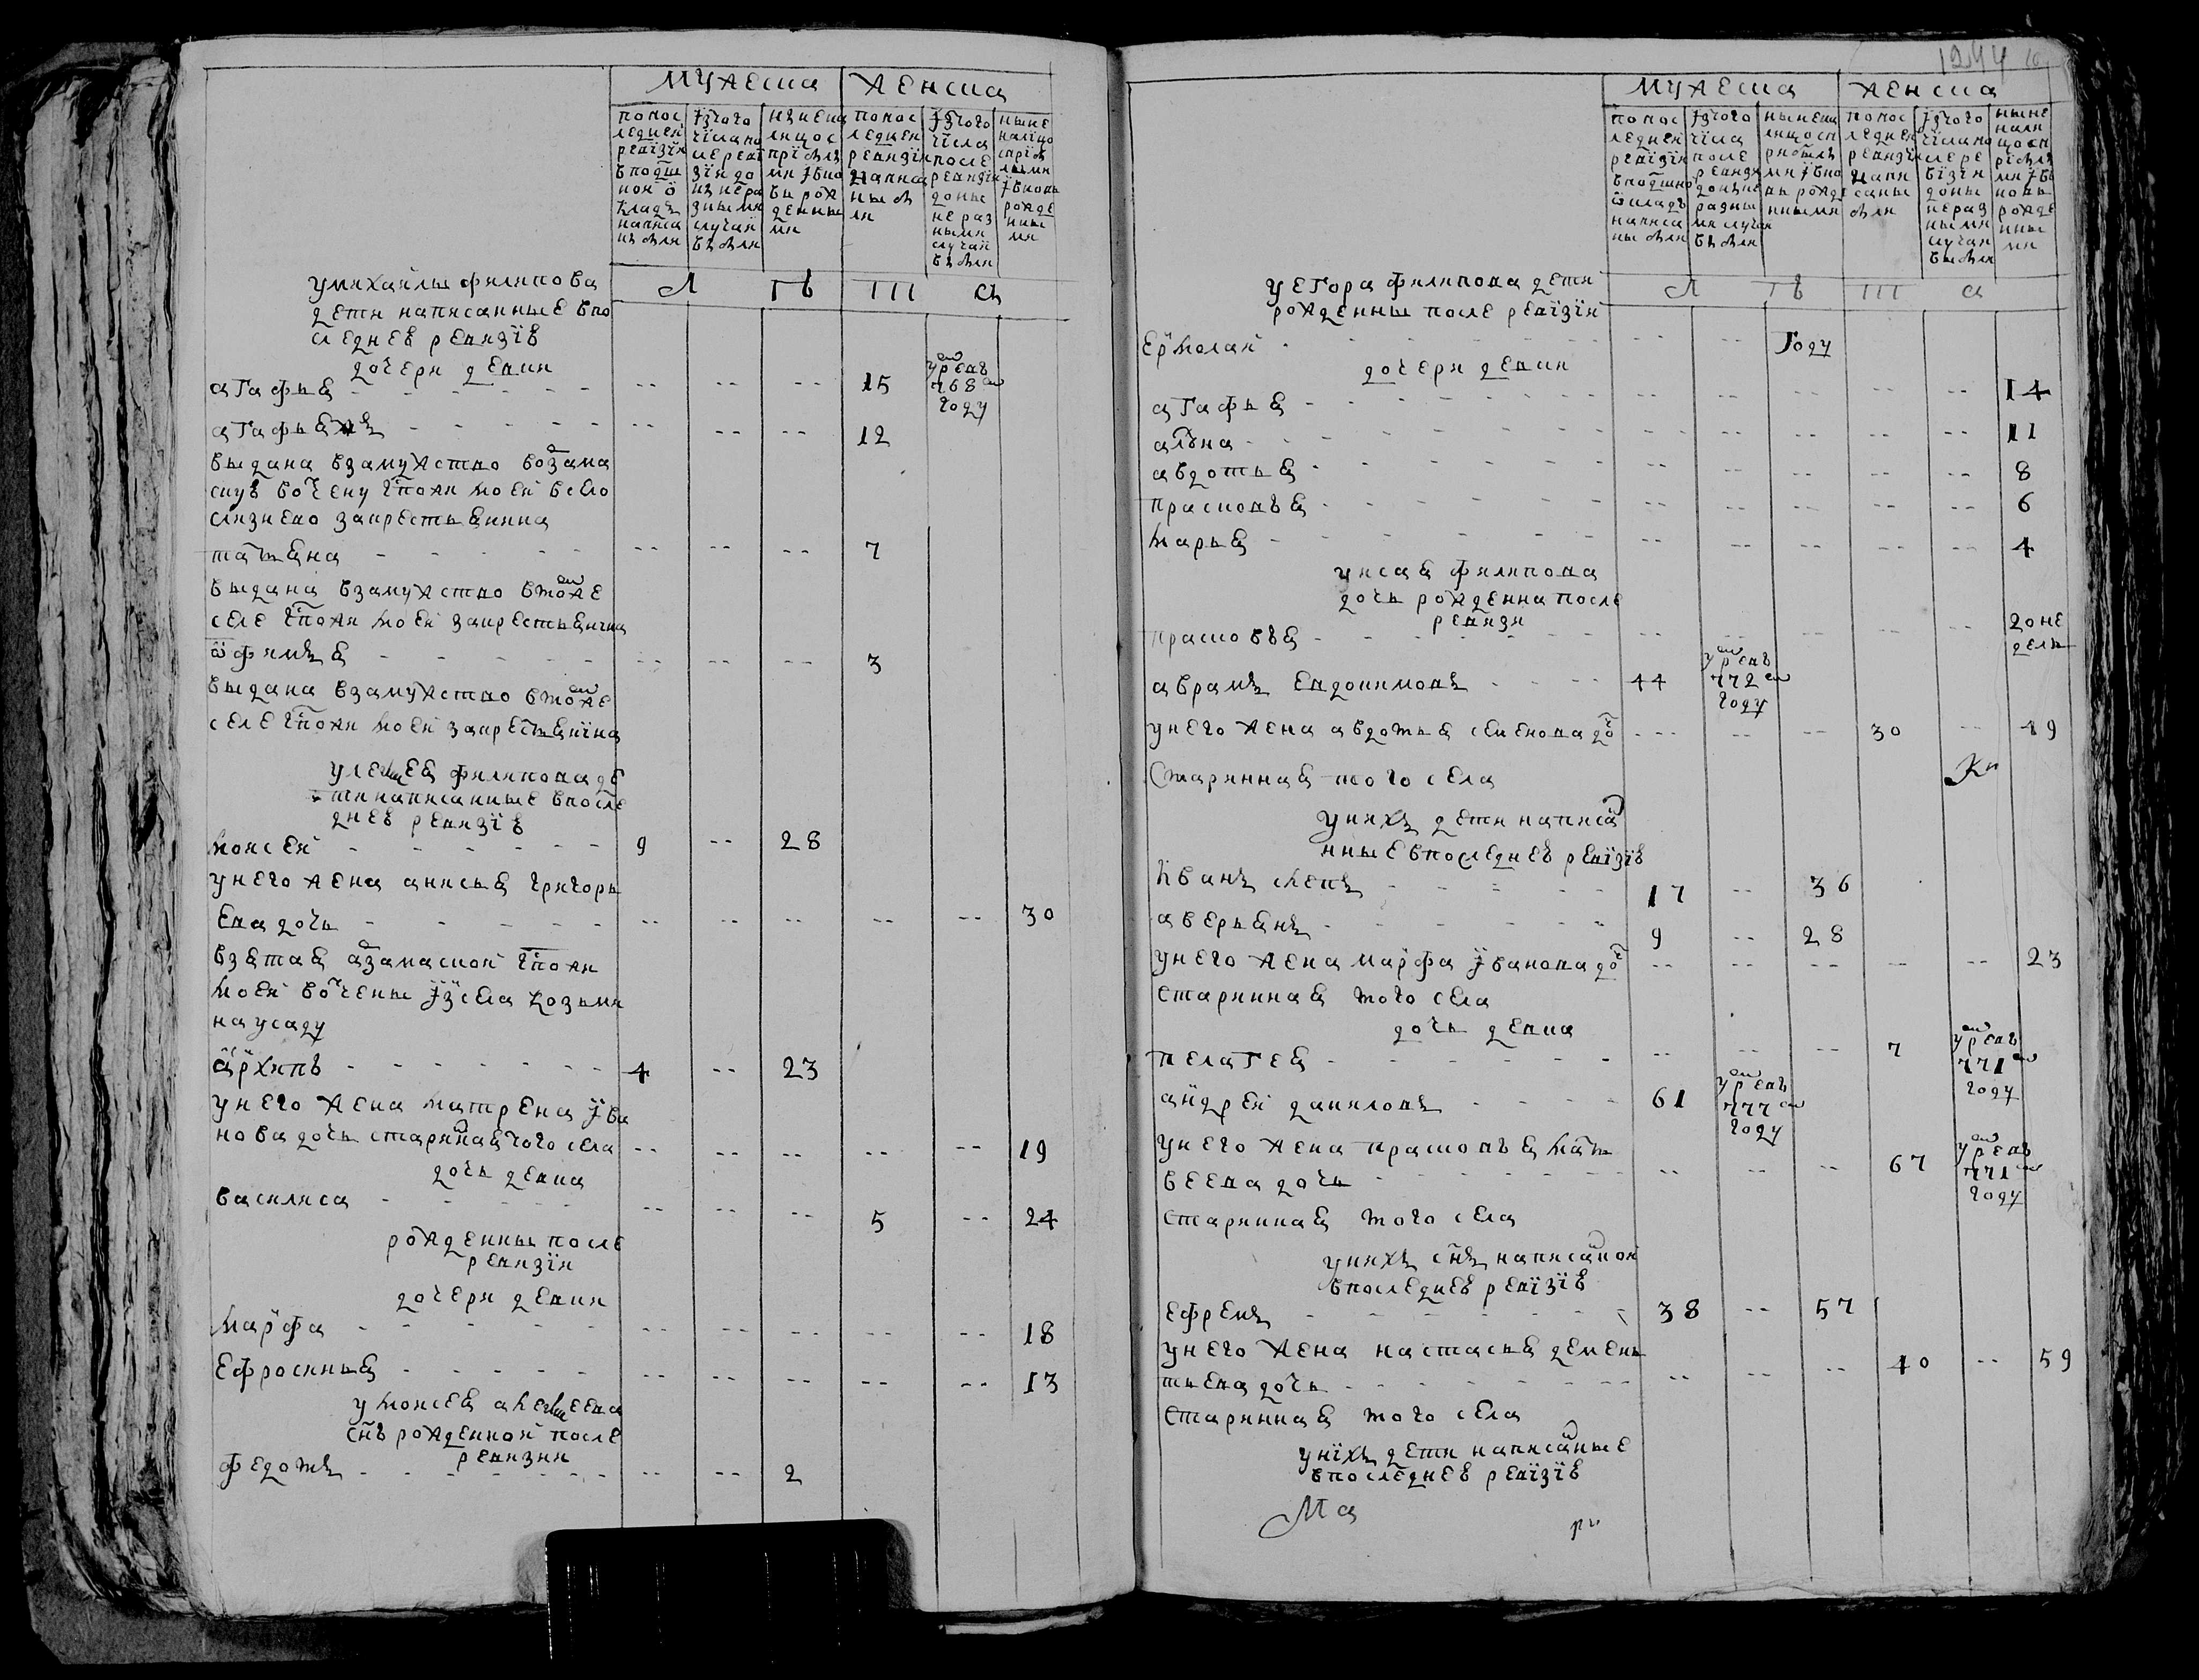 мужеска женска
попос ледней ревизiи вподш ной ѡ кладъ написа нъ были
iзтого числа по сле реви зiи до нъ нера зными случаи въ были
нъ неш лицо с прибылы ми iвно вь рож денны ми
попос ледней ревизiи написа ны бы ли
iзтого числа после ревизiи донъ не раз ными случаи въ были
ныне налицо сприб лыми iвновь рожде нны ми
умихаилы филипова
дети написанные впо
следнеѣ ревизiѣ
л тъ ш а
дочери девки
агафья 15 умрела 768м году
агафья жъ 12
выдана взамужство возама
скую вотчену гспожи моей всело
слизнево закрестьянина
татьяна 7
выдана взамужство втомже
селе гспожи моей закрестьянина
ѡфимья 3
выдана взамужство втомже
селе гспожи моей закрестьянина
улексея филипова де
ти написанные впосле
днеѣ ревизiѣ
моисей 9 28
унего жена анисья григорь
ева дочь 30
взятая арзамаской гспожи
моей вотчены iзсела козьми
на усаду
архипъ 4 23
унего жена матрена iва
нова дочь стариная того села 19
дочь девка
василиса 5 24
рожденны после
ревизiи
дочери девки
марфа 18
ефросинья 13
умоисея алексеева
снъ рожденной после
ревизии
федотъ 2
1244
мужеска женска
попос ледней ревизiи вподшно ѡкладъ написа ны были
iзтого числа после ревизи донъне разны ми случаи въ были
нынена лицо сп рибылъ ми iвно вь рожде нными
попос ледней ревизiи напи саны были
iзтого числапо сле ре визiи донъ нераз ными случаи въ были
ныне нали цо сп рiбыл ми iвъ новь рожде нны ми
уегора филипова дети
рожденны после ревизiи
л тъ ш а
ермолай году
дочери девки
агафья 14
алена 11
авдотья 8
прасковья 6
марья 4
уисая филипова
дочь рожденна после
ревизи
прасковья 2 оне дели
аврамъ евдокимовъ 44 умревъ 772м году
унего жена авдотья семенова дочь 30 49
старинная того села
унихъ дети написа
нные впоследнеѣ ревiзiѣ
iванъ слепъ 17 36
аверьянъ 9 28
унего жена марфа iванова дочь 23
старинная того села
дочь девка
пелагея 7 умревъ 771м году
андрей даниловъ 61 умревъ 777м году
унего жена прасковья мат
веева дочь 67 умревъ 771м году
старинная того села
унихъ снъ написаной
впоследнеѣ ревiзiѣ
ефремъ 38 57
унего жена настасья демень
тьева дочь 40 59
старинная того села
унiхъ дети написаные
впоследнеѣ ревiзiѣ
Ма